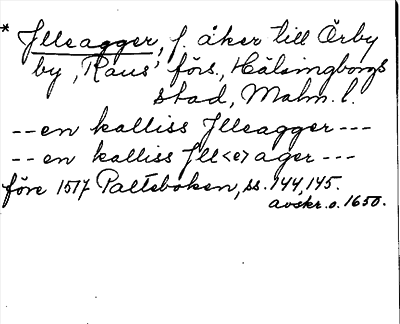 * Illeagger, f. åker till Örby
by, Raus' förs., Hälsingborgs
stad, Malm. l.
-- en kalliss Illeagger ---
-- en kalliss Ill<e>ager ---
före 1517 Palteboken, ss. 144, 145.
avskr. o. 1650.